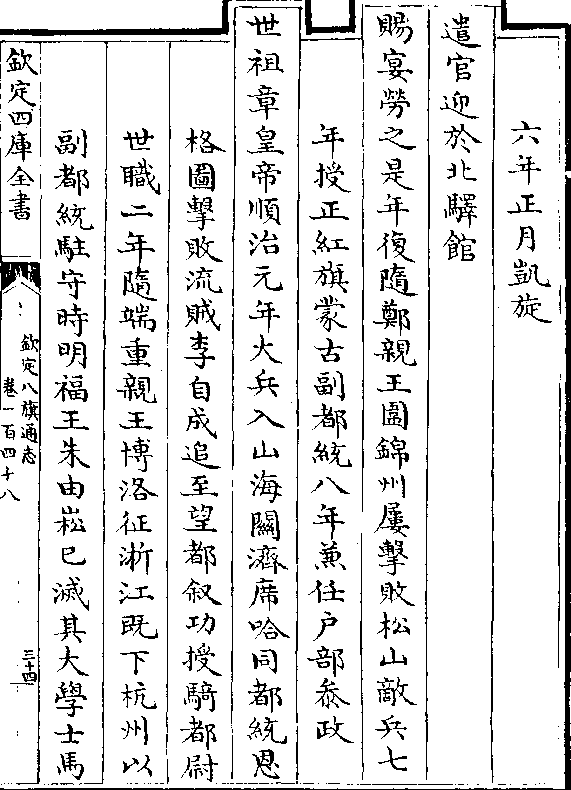 六年正月凱旋
遣官迎於北驛館
賜宴勞之是年復隨鄭親王圍錦州屢擊敗松山敵兵七
年授正紅旗蒙古副都統八年兼任户部叅政
世祖章皇帝順治元年大兵入山海關濟席哈同都統恩
格圖擊敗流賊李自成追至望都叙功授騎都尉
世職二年隨端重親王博洛征浙江既下杭州以
副都統駐守時明福王朱由崧已滅其大學士馬
欽定四庫全書
欽定八旗通志
卷一百四十八
三十四